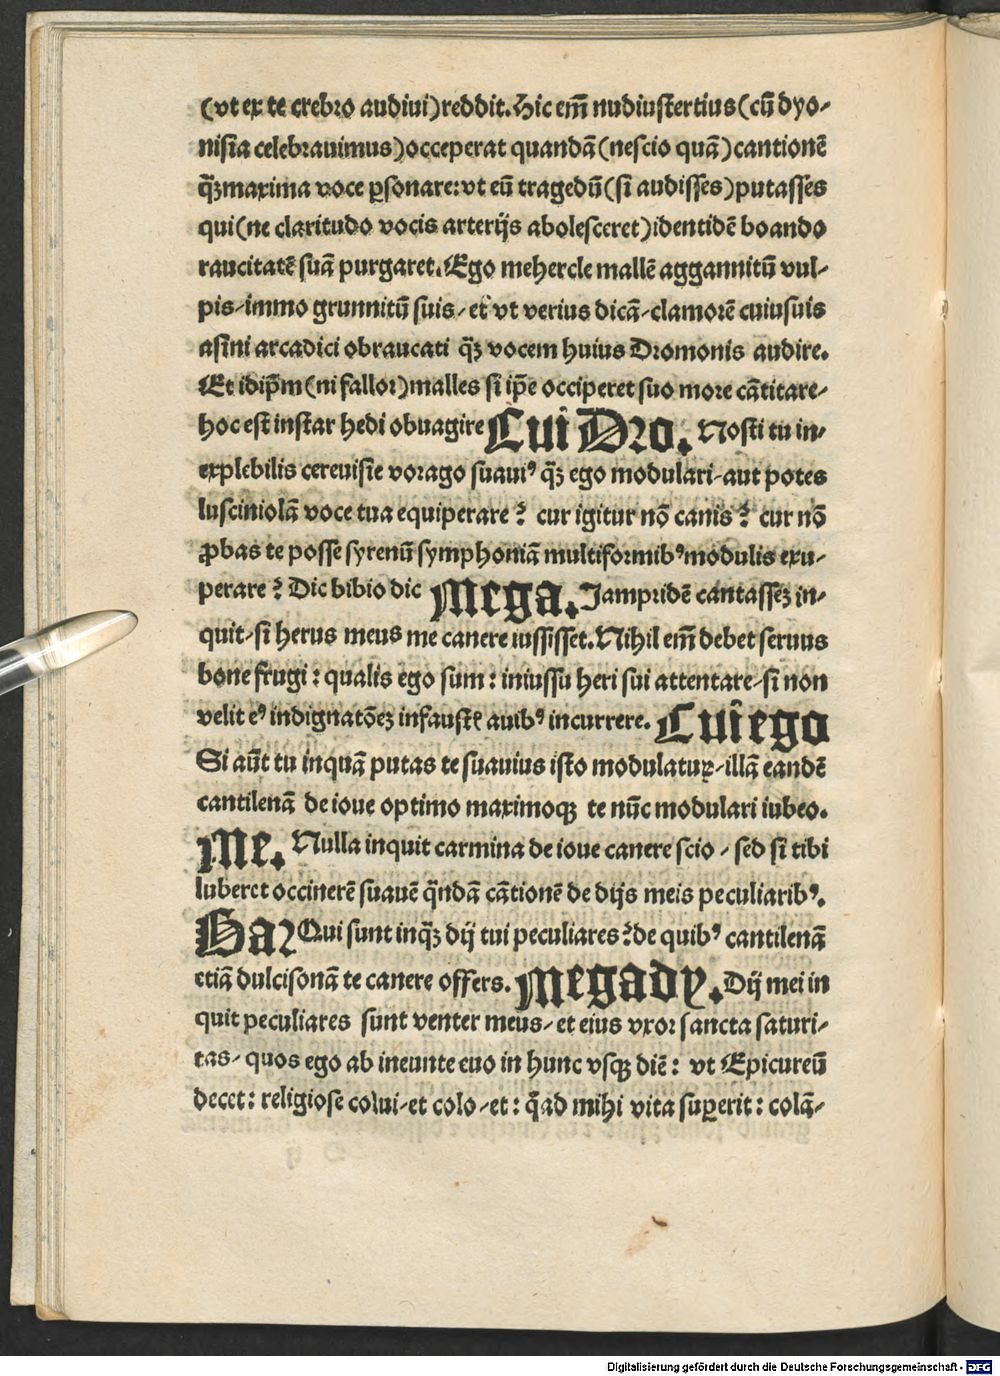 (vt ex te crebro audiui)reddit. Hic em̃ nudiustertius(cũ dyo⸗
nisia celebrauimus)occeperat quandã(nescio quã)cantionẽ
q̃ꝫ maxima voce ꝑsonare: vt eũ tragedũ(si audisses)putasses
qui(ne claritudo vocis arterijs abolesceret)identidẽ boando
raucitatẽ suã purgaret. Ego mehercle mallẽ aggannitũ vul⸗
pis/immo grunnitũ suis/et vt verius dicã/clamorẽ cuiusuis
asini arcadici obraucati q̃ꝫ vocem huius Dromonis audire.
Et idip̃m(ni fallor)malles si ip̃e occiperet suo more cãtitare/
hoc est instar hedi obuagire Cui Dro. Nosti tu in⸗
explebilis cereuisie vorago suauiꝰ q̃ꝫ ego modulari/aut potes
lusciniolã voce tua equiperare? cur igitur nõ canis? cur nõ
ꝓbas te posse syrenũ symphoniã multiformibꝰ modulis exu⸗
perare? Dic bibio dic Mega. Jampridẽ cantasseꝫ in⸗
quit/si herus meus me canere iussisset. Nihil em̃ debet seruus
bone frugi: qualis ego sum: iniussu heri sui attentare/si non
velit eꝰ indignatõeꝫ infauste auibꝰ incurrere. Cui ego
Si aũt tu inquã putas te suauius isto modulatuꝝ/illã eandẽ
cantilenã de ioue optimo maximoqꝫ te nũc modulari iubeo.
Me. Nulla inquit carmina de ioue canere scio/sed si tibi
luberet occinerẽ suauẽ q̃ndã cãtionẽ de dijs meis peculiaribꝰ.
Bar Qui sunt inq̃ꝫ dij tui peculiares? de quibꝰ cantilenã
etiã dulcisonã te canere offers. Megady. Dij mei in
quit peculiares sunt venter meus/et eius vxor sancta saturi⸗
tas/quos ego ab ineunte euo in hunc vsqꝫ diẽ: vt Epicureũ
decet: religiose colui/et colo/et: q̃ad mihi vita suꝑerit: colã/
Digitalisierung gefördert durch die Deutsche Forschungsgemeinschaft - DFG